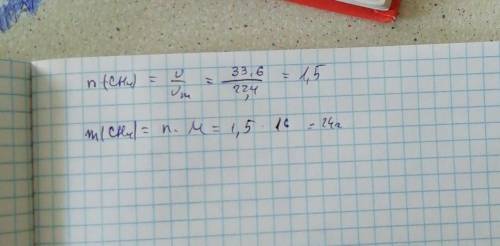 n(CH₄) = υ/υm = 33,6/22,4 = 1,5
m(CH₄) = n · M = 1,5 · 16 = 24г